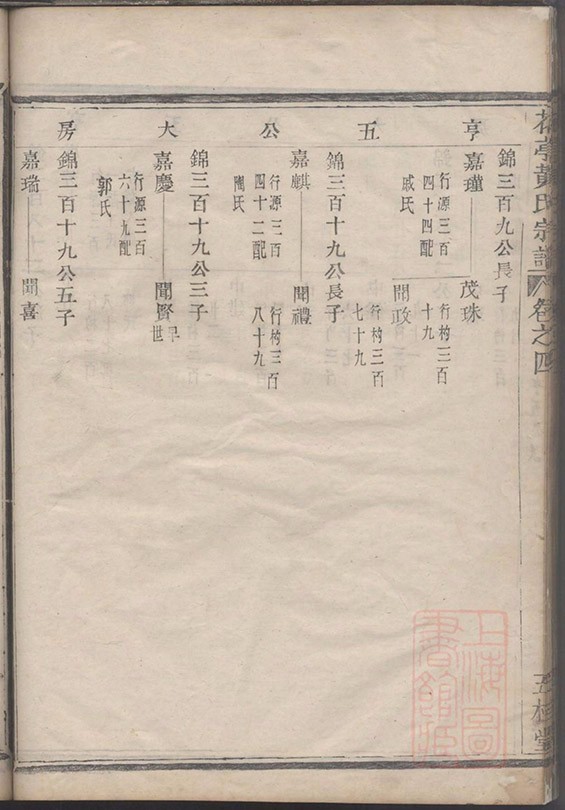 黃氏宗譜 卷之四
亨五公大房
錦三百九公長子
嘉瑾 茂珠
行源三百
四十四配
戚氏
行杓三百
十九
聞政
行杓三百
七十九
錦三百十九公長子
嘉麒 聞禮
行源三百
四十二配
陶氏
行杓三百
八十九
錦三百十九公三子
嘉慶 聞賢 早世
行源三百
六十九配
郭氏
錦三百十九公五子
嘉瑞 聞喜
五桂堂
上海圖書館藏